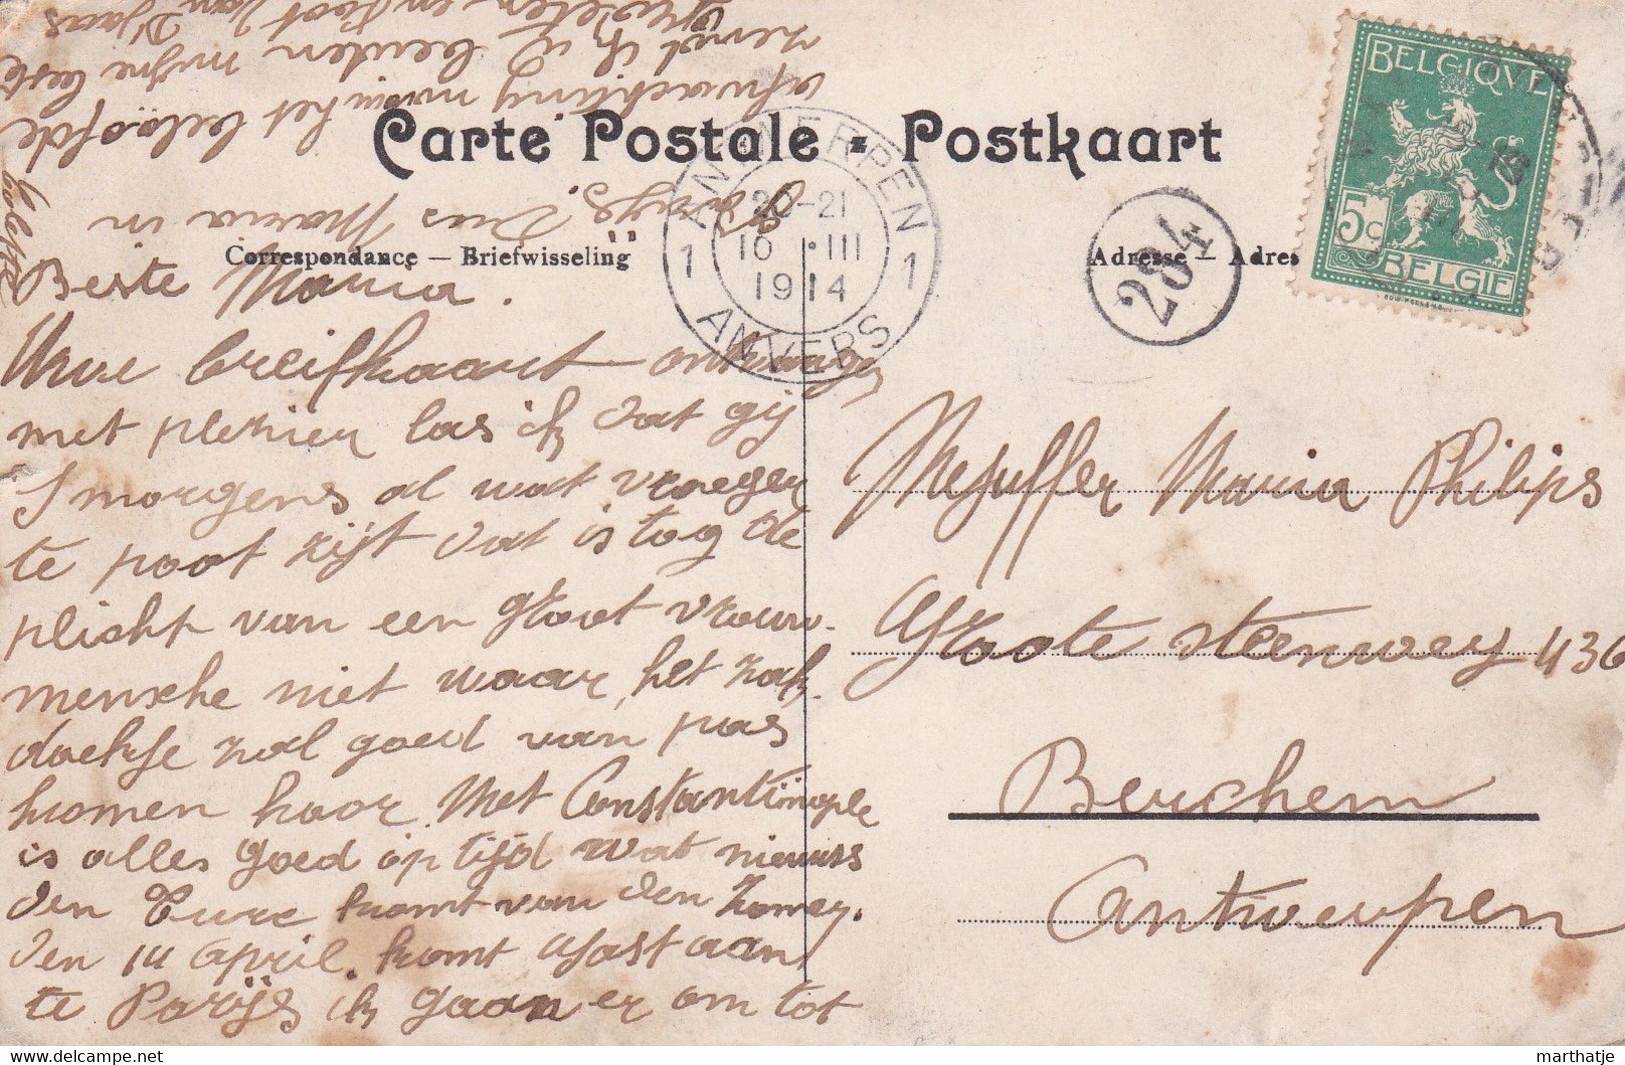 Carte Postale - Postkaart
Correspondance — Briefwisseling
Adresse — Adres
BELGIQUE
5c
BELGIE
ANTWERPEN
20-21
10 III
1914
1 1
ANVERS
284
Beste Maria.
Uwe breifkaart ontvangen
met plezier las ik dat gij
s morgens al wat vroeger
te poot zijt dat is tog de
plicht van een groot vrouw-
mensche niet waar, het zak
doekje zal goed van pas
komen hoor. Met Constantinople
is alles goed op tijd wat nieuws
den Turc komt van den zomer.
den 14 April komt Gast aan
te Parijs ik gaan er om tot
Parijs. Dus Maria in
afwachting van het beloofde
zend ik u beiden mijne beste
groeten en
Mejuffer Maria Philips
Groote steenweg 436
Berchem
Antwerpen
marthatje